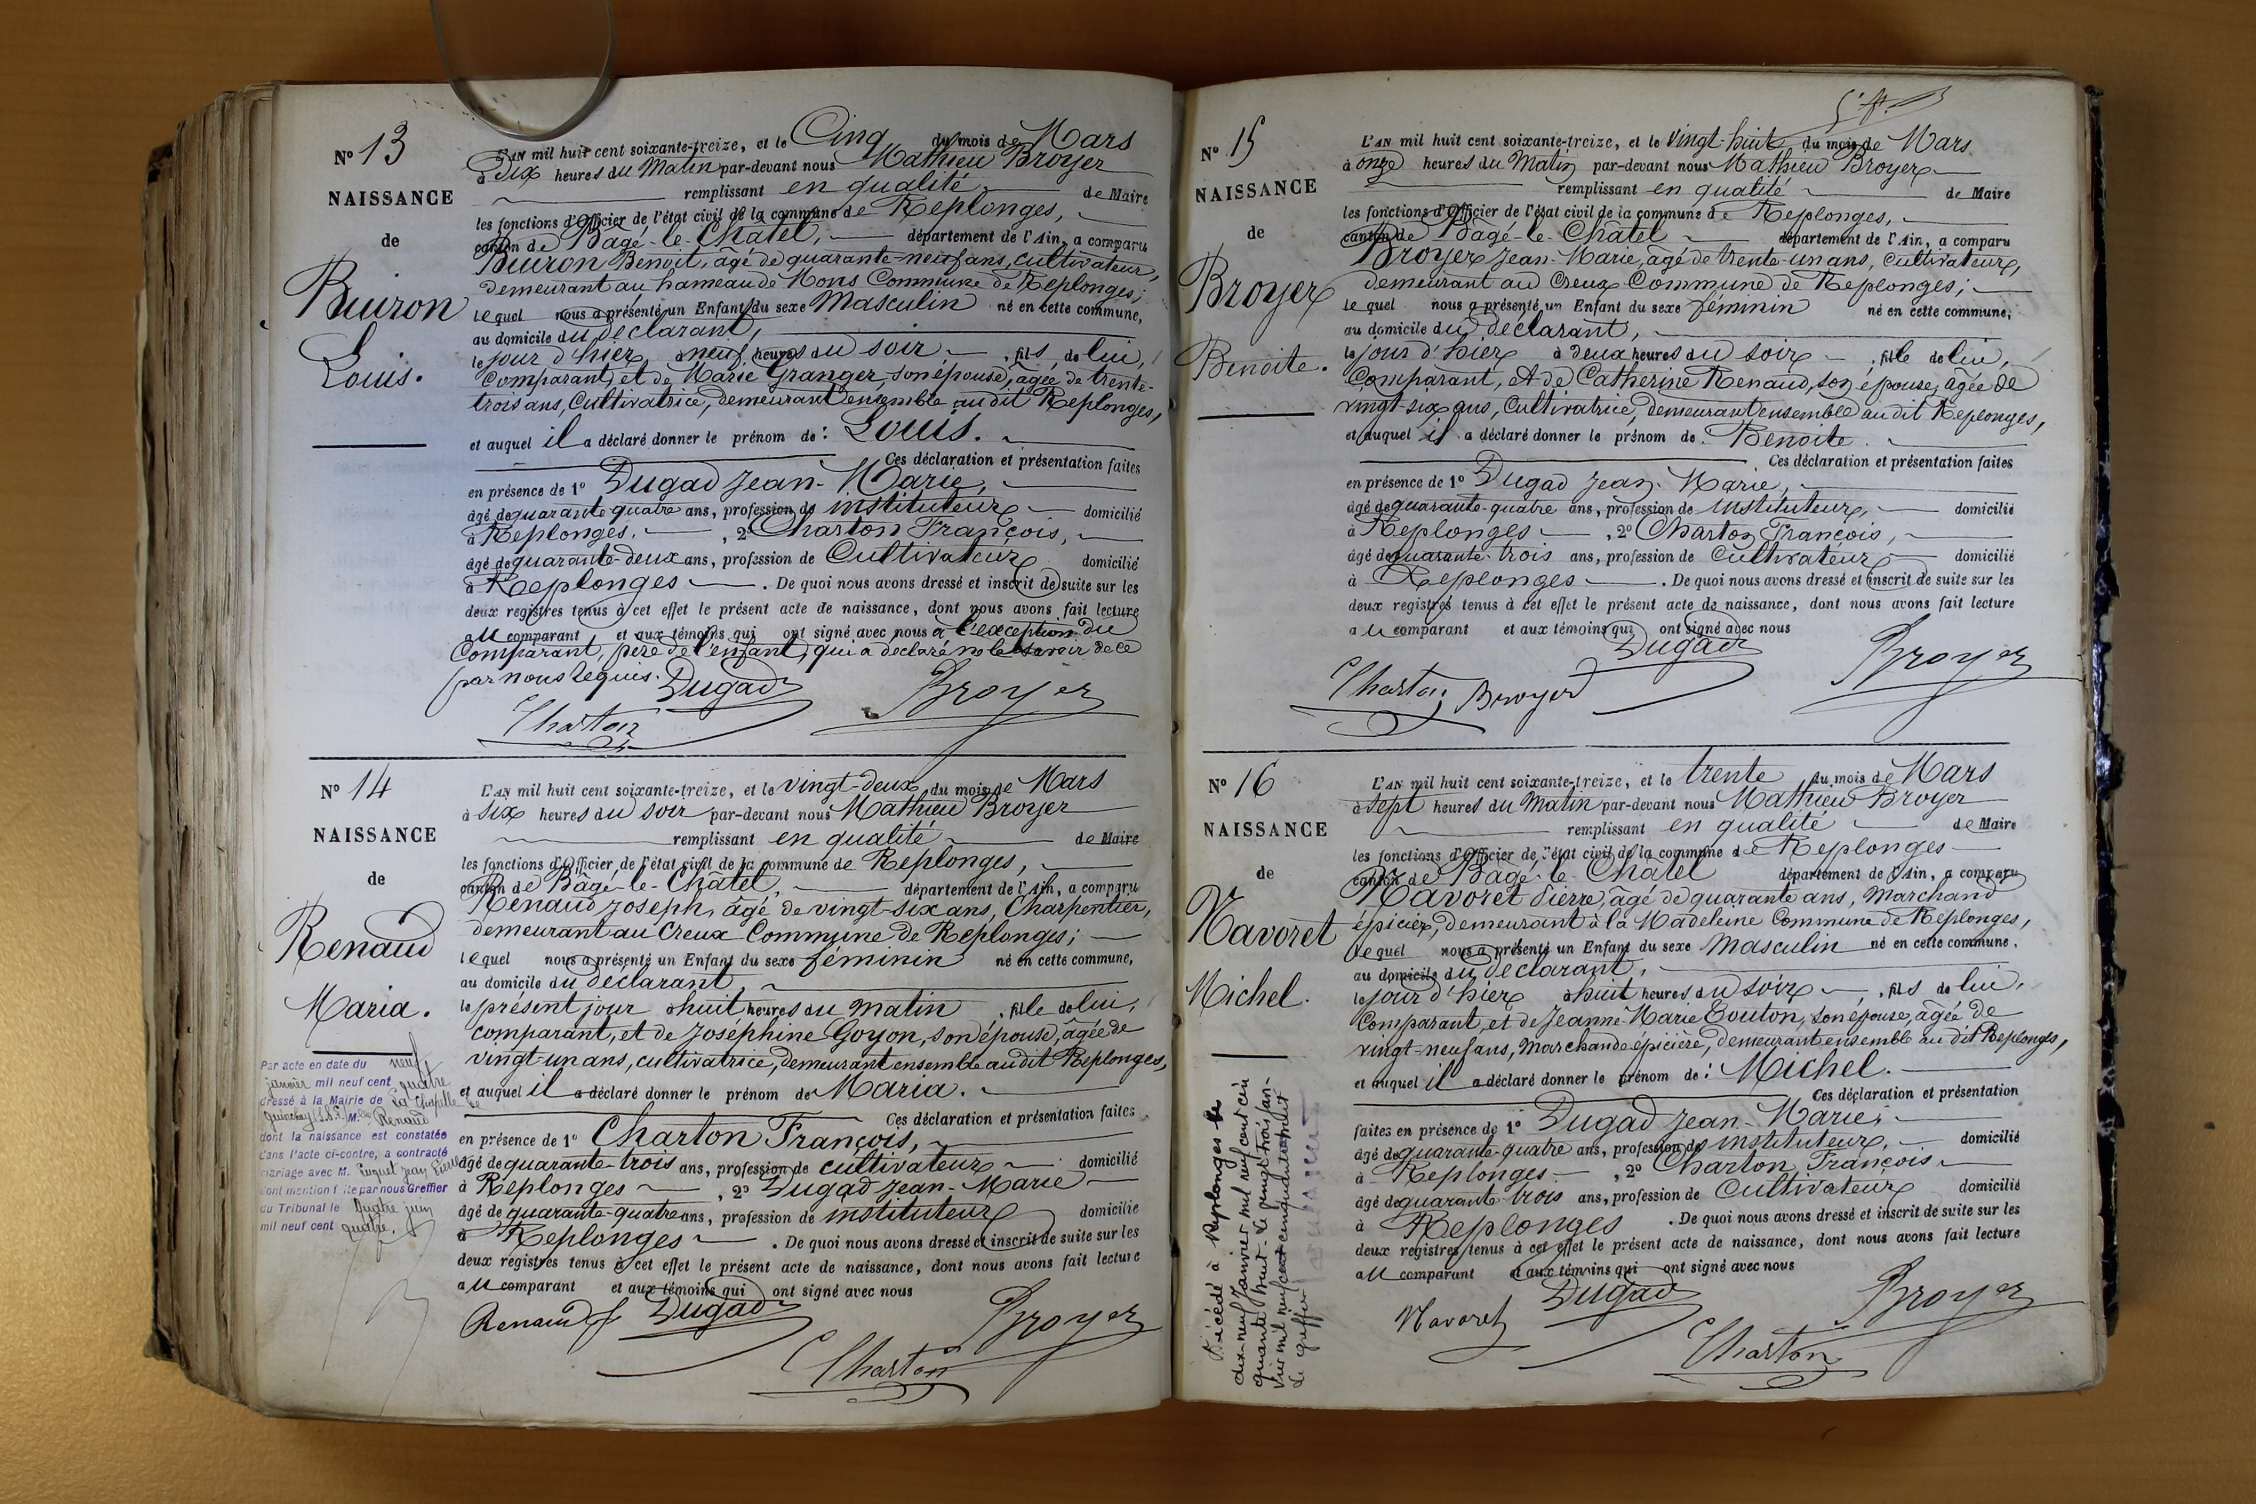 N° 13
NAISSANCE
de
Buiron
Louis.
L'AN mil huit cent soixante-treize, et le Cinq du mois de Mars
à Six heures du Matin par-devant nous Mathieu Broyer
remplissant en qualité de Maire
les fonctions d'Officier de l'état civil de la commune de Replonges,
canton de Bagé-le-Chatel, département de l'Ain, a comparu
Buiron Benoit, agé de quarante-neuf ans, cultivateur,
demeurant au hameau de Mons Commune de Replonges;
lequel nous a présenté un Enfant du sexe Masculin né en cette commune,
au domicile du déclarant,
le jour d'hier à neuf heures du soir, fils de lui,
Comparant, et de Marie Granger, son épouse, âgée de trente-
trois ans, Cultivatrice, demeurant ensemble au dit Replonges,
et auquel il a déclaré donner le prénom de : Louis.
Ces déclaration et présentation faites
en présence de 1° Dugad Jean-Marie,
âgé de quarante quatre ans, profession de instituteur domicilié
à Replonges. , 2° Charton François,
âgé de quarante-deux ans, profession de Cultivateur domicilié
à Replonges . De quoi nous avons dressé et inscrit de suite sur les
deux registres tenus à cet effet le présent acte de naissance, dont nous avons fait lecture
au comparant et aux témoins qui ont signé avec nous à l'exception du
Comparant, père de l'enfant, qui a déclaré ne le savoir de ce
par nous requis. Dugad Broyer
Charton
N° 14
NAISSANCE
de
Renaud
Maria.
L'AN mil huit cent soixante-treize, et le vingt-deux du mois de Mars
à six heures du soir par-devant nous Mathieu Broyer
remplissant en qualité de Maire
les fonctions d'Officier de l'état civil de la commune de Replonges,
canton de Bagé-le-Châtel, département de l'Ain, a comparu
Renaud Joseph, âgé de vingt-six ans, Charpentier,
demeurant au Creux Commune de Replonges;
lequel nous a présenté un Enfant du sexe féminin né en cette commune,
au domicile du déclarant
le présent jour à huit heures du matin , fille de lui,
comparant, et de Joséphine Goyon, son épouse, âgée de
vingt-un ans, cultivatrice, demeurant ensemble au dit Replonges,
et auquel il a déclaré donner le prénom de Maria.
Ces déclaration et présentation faites
en présence de 1° Charton François,
âgé de quarante-trois ans, profession de cultivateur domicilié
à Replonges , 2° Dugad Jean-Marie
âgé de quarante-quatre ans, profession de instituteur domicilié
à Replonges . De quoi nous avons dressé et inscrit de suite sur les
deux registres tenus à cet effet le présent acte de naissance, dont nous avons fait lecture
au comparant et aux témoins qui ont signé avec nous
Renaud Dugad Broyer
Charton
Par acte en date du neuf
janvier mil neuf cent quatre
dressé à la Mairie de La Chapelle de
Guinchay (S.&L.) Melle Renaud
dont la naissance est constatée
dans l'acte ci-contre, a contracté
mariage avec M. Jean Pierre
dont mention faite par nous Greffier
du Tribunal le quatre juin
mil neuf cent quatre.
N° 15
NAISSANCE
de
Broyer
Benoite.
L'AN mil huit cent soixante-treize, et le vingt-huit du mois de Mars
à onze heures du Matin par-devant nous Mathieu Broyer
remplissant en qualité de Maire
les fonctions d'Officier de l'état civil de la commune de Replonges,
canton de Bagé-le-Chatel département de l'Ain, a comparu
Broyer Jean-Marie, agé de trente-un ans, cultivateur,
demeurant au Creux Commune de Replonges;
lequel nous a présenté un Enfant du sexe féminin né en cette commune,
au domicile du déclarant,
le jour d'hier à deux heures du soir , fille de lui,
Comparant, et de Catherine Renaud, son épouse, âgée de
vingt-six ans, Cultivatrice, demeurant ensemble au dit Replonges,
et auquel il a déclaré donner le prénom de Benoite.
Ces déclaration et présentation faites
en présence de 1° Dugad Jean-Marie,
âgé de quarante-quatre ans, profession de instituteur, domicilié
à Replonges , 2° Charton François,
âgé de quarante-trois ans, profession de Cultivateur domicilié
à Replonges . De quoi nous avons dressé et inscrit de suite sur les
deux registres tenus à cet effet le présent acte de naissance, dont nous avons fait lecture
au comparant et aux témoins qui ont signé avec nous
Dugad Broyer
Charton Broyer
N° 16
NAISSANCE
de
Navoret
Michel.
L'AN mil huit cent soixante-treize, et le trente du mois de Mars
à sept heures du Matin par-devant nous Mathieu Broyer
remplissant en qualité de Maire
les fonctions d'Officier de l'état civil de la commune de Replonges
canton de Bagé-le-Chatel département de l'Ain, a comparu
Navoret Pierre, âgé de quarante ans, Marchand
épicier, demeurant à la Madeleine Commune de Replonges,
lequel nous a présenté un Enfant du sexe masculin né en cette commune.
au domicile du déclarant,
le jour d'hier à huit heures du soir , fils de lui,
Comparant, et de Jeanne-Marie Touton, son épouse, âgée de
vingt-neuf ans, Marchande épicière, demeurant ensemble au dit Replonges,
et auquel il a déclaré donner le prénom de : Michel.
Ces déclaration et présentation
faites en présence de 1° Dugad Jean-Marie,
âgé de quarante-quatre ans, profession de instituteur, domicilié
à Replonges , 2° Charton François
âgé de quarante trois ans, profession de Cultivateur domicilié
à Replonges . De quoi nous avons dressé et inscrit de suite sur les
deux registres tenus à cet effet le présent acte de naissance, dont nous avons fait lecture
au comparant et aux témoins qui ont signé avec nous
Navoret Dugad Broyer
Charton
Décédé à Replonges le
dix-neuf Janvier mil neuf cent cin
quante huit. Le vingt trois Jan-
vier mil neuf cent cinquante huit
Le greffier